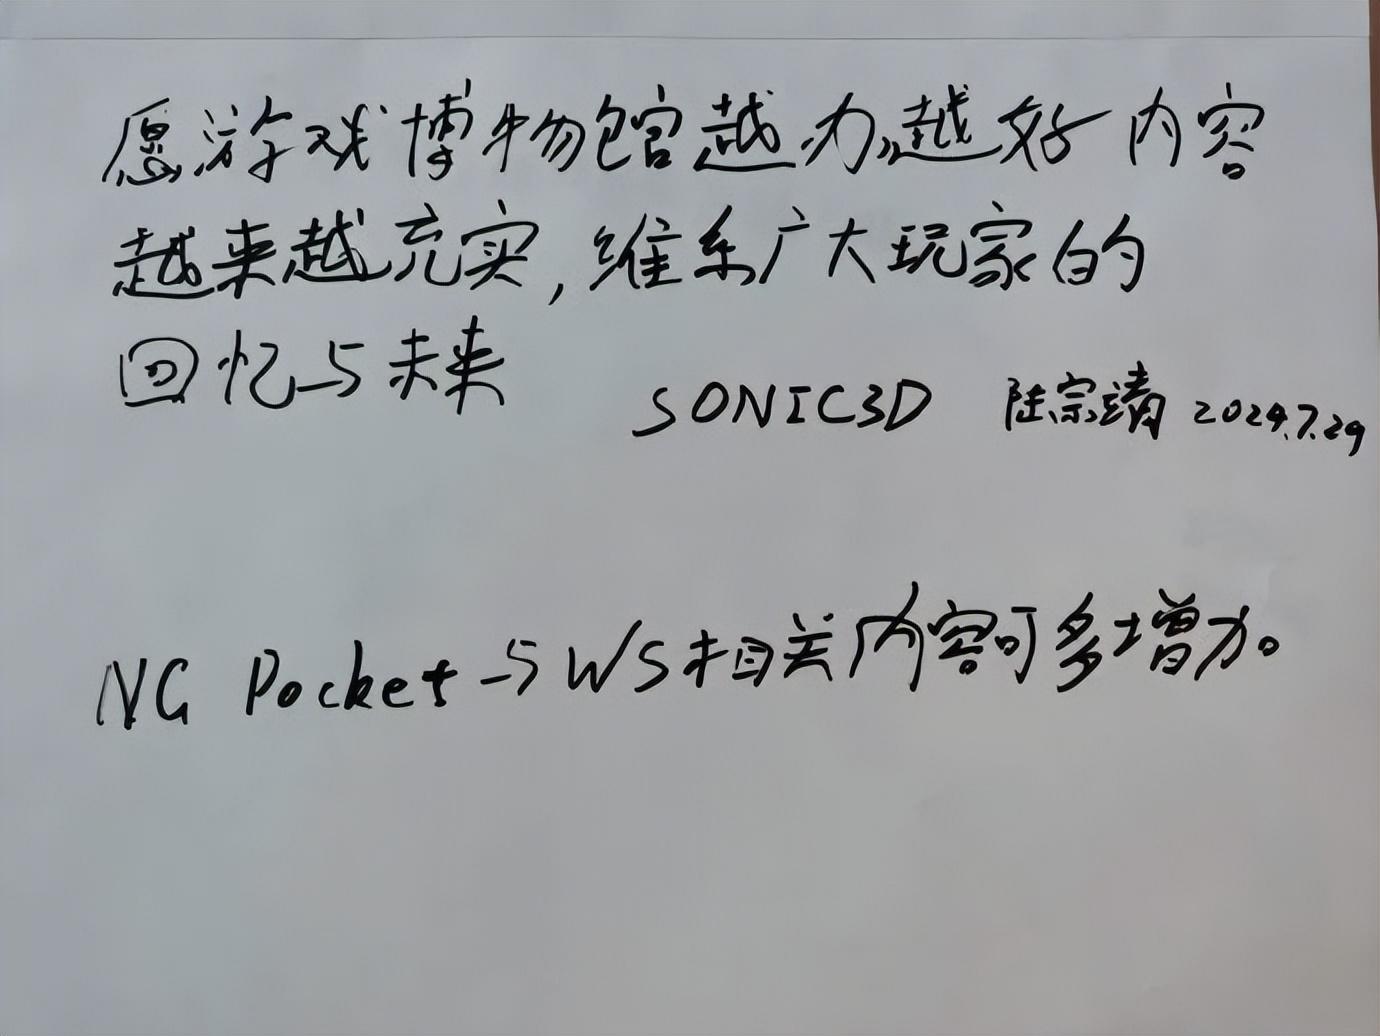 愿游戏博物馆越办越好内容
越来越充实,维系广大玩家的
回忆与未来
SONIC3D 陆宗靖 2024.7.29
NG Pocket与WS相关内容可多增加。